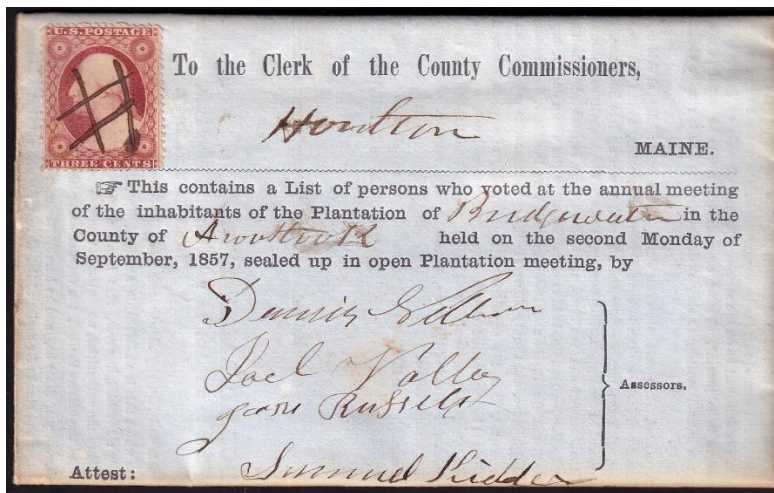 U.S. POSTAGE
To the Clerk of the County Commissioners,
Houlton
MAINE.
THREE CENTS
☞ This contains a List of persons who voted at the annual meeting
of the inhabitants of the Plantation of Bridgewater in the
County of Aroostook held on the second Monday of
September, 1857, sealed up in open Plantation meeting, by
Dennis
Joel Valley
Russell
Assessors.
Attest: Samuel Kidder